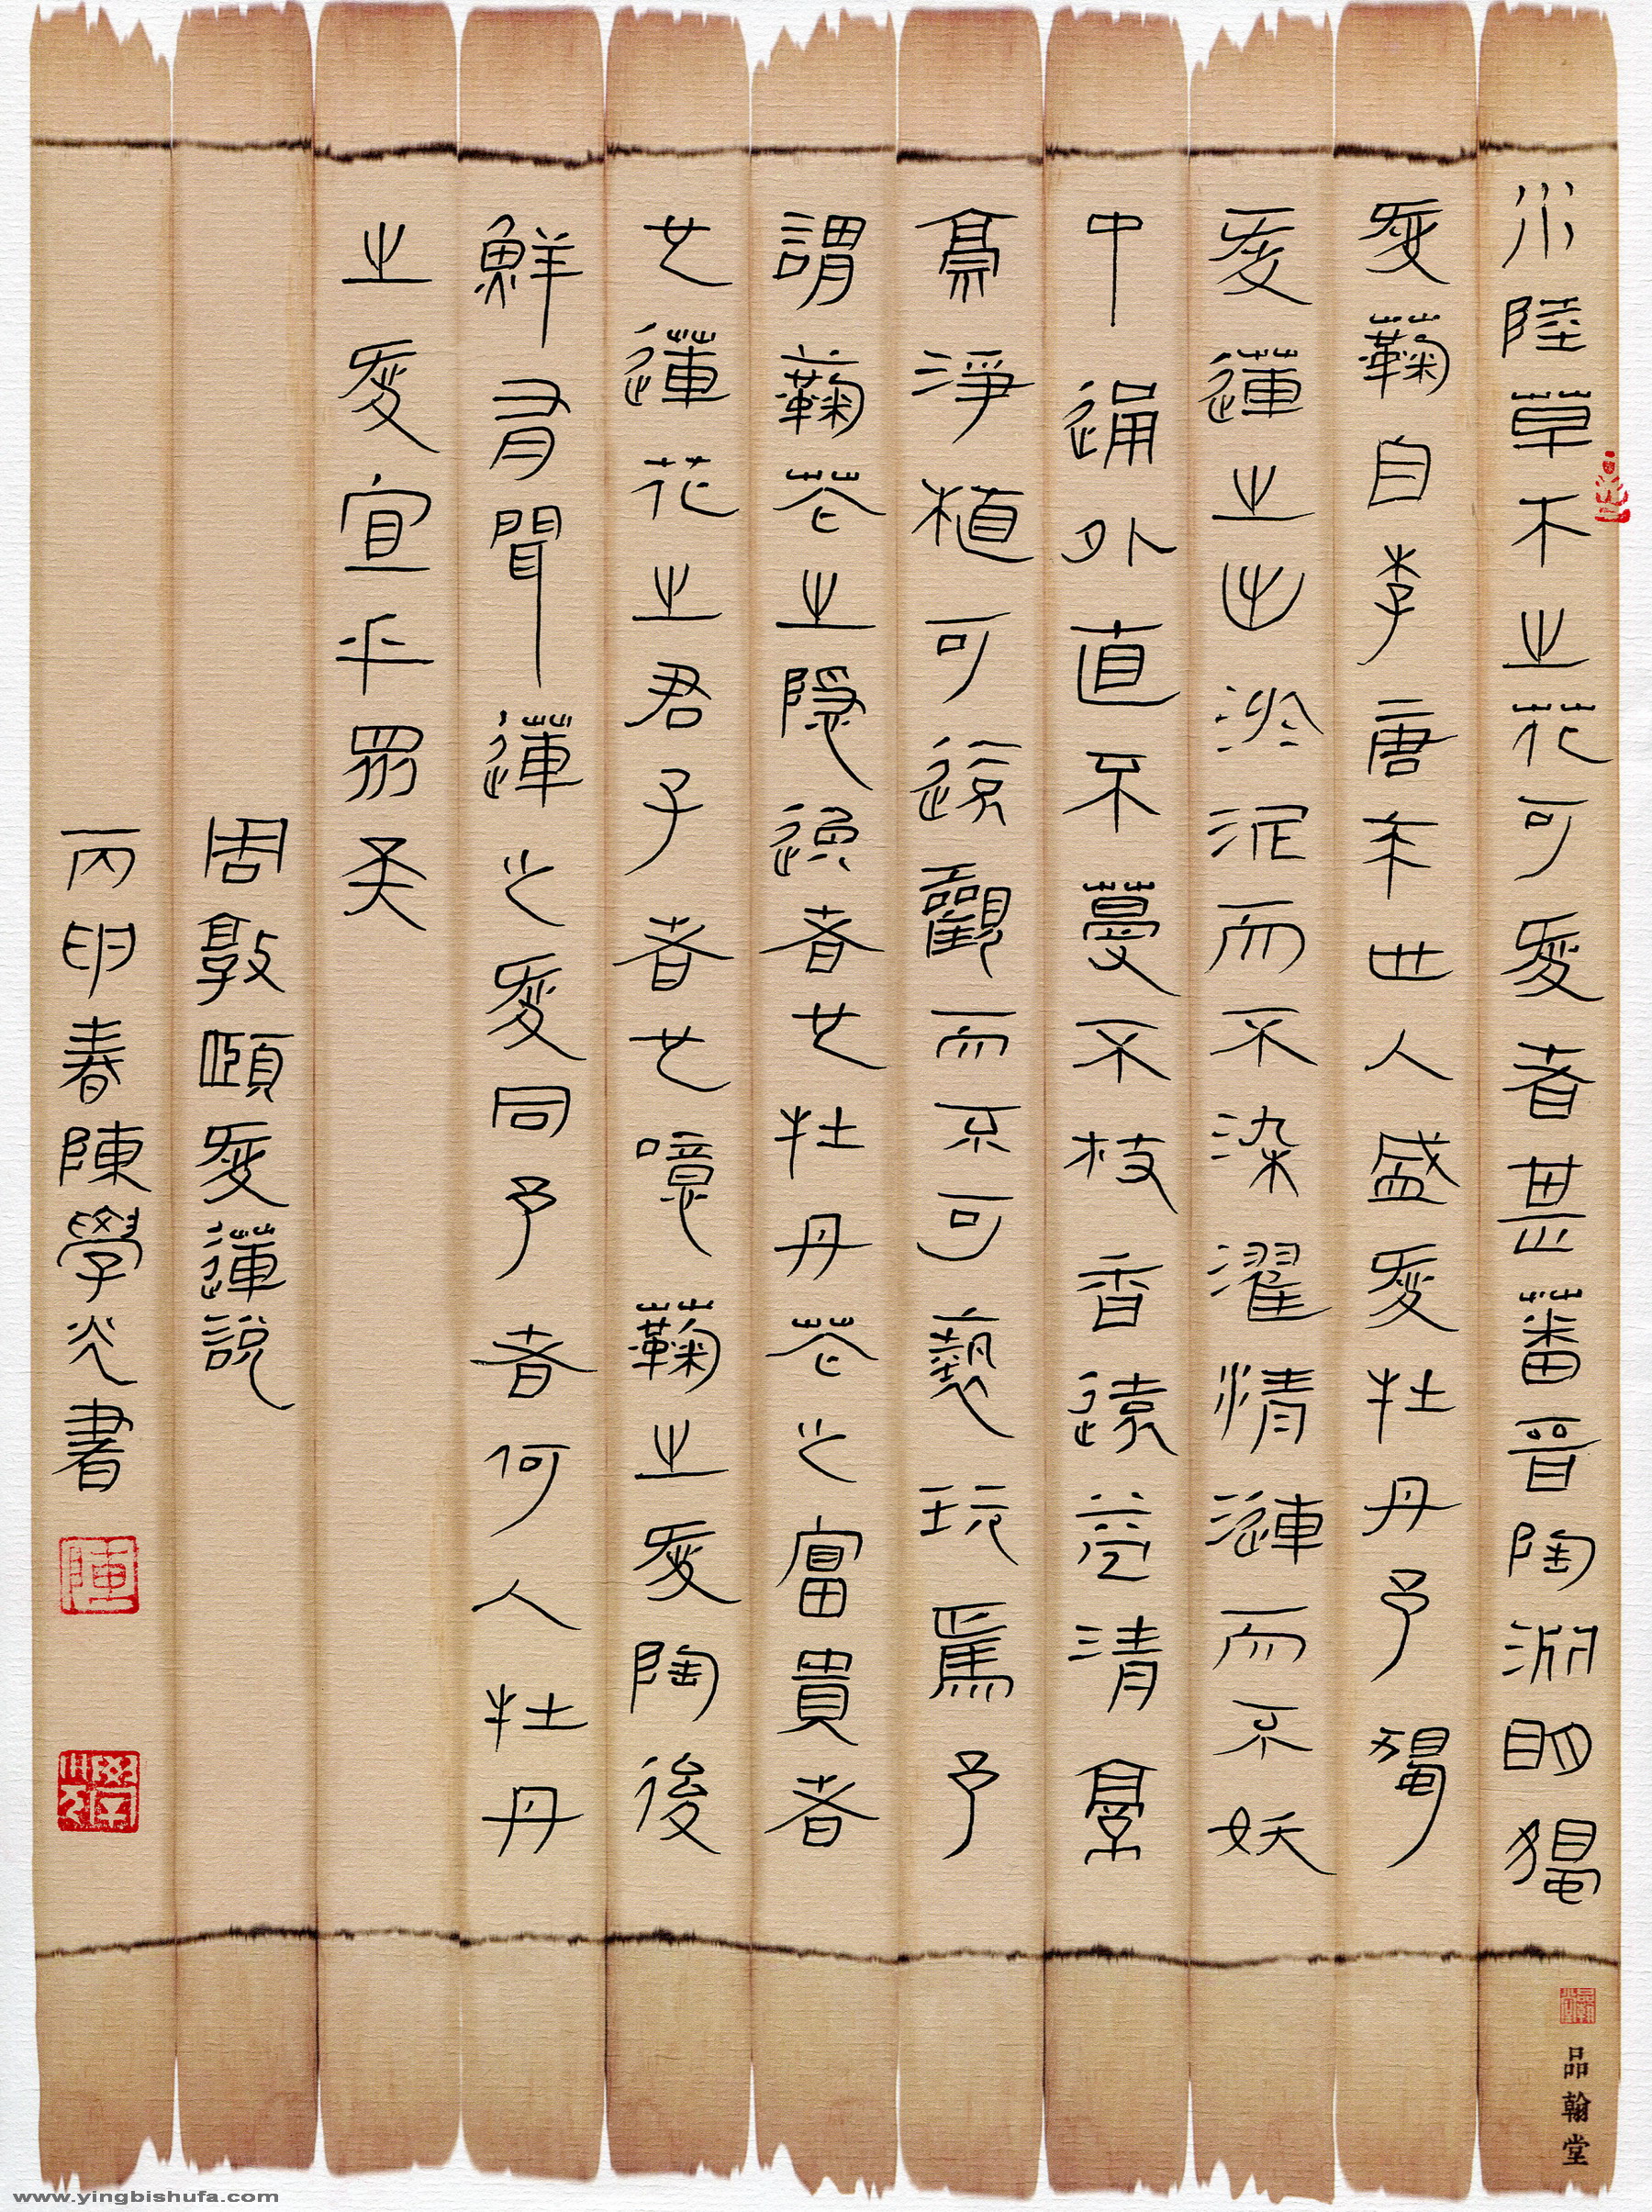 水陸草不之花可愛者甚蕃晉陶淵明獨
愛蘜自李唐來世人盛愛牡丹予獨
愛蓮之出淤泥而不染濯清漣而不妖
中通外直不蔓不枝香遠益清亭
亭淨植可遠觀而不可褻玩焉予
謂蘜花之隱逸者也牡丹花之富貴者
也蓮花之君子者也噫蘜之愛陶後
鮮有聞蓮之愛同予者何人牡丹
之愛宜乎眾矣
周敦頤愛蓮說
丙申春陳學光書
陳
品翰堂
www.yingbishufa.com